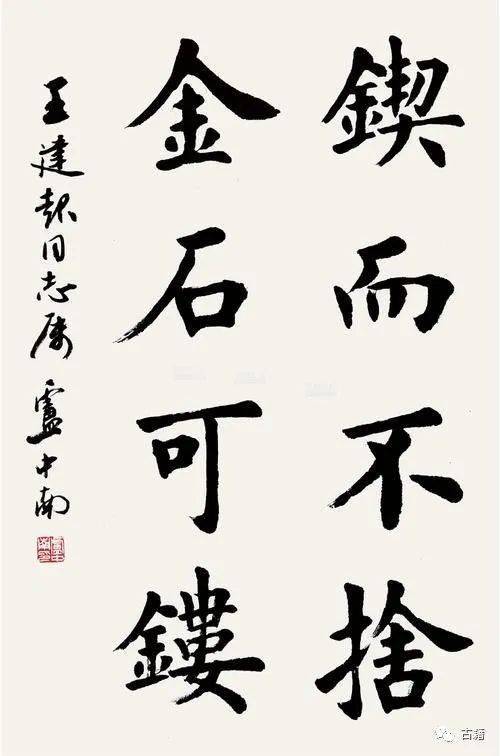 鍥而不捨
金石可鏤
王建起同志属 盧中南
古籍